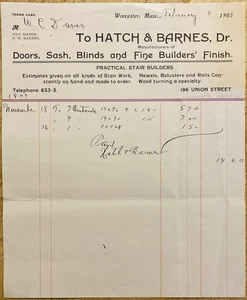 TERMS CASH.
Worcester, Mass., February 4 1905
M W. C. 
GEO. HATCH.
F. W. BARNES.
To HATCH & BARNES, Dr.
Manufacturers of
Doors, Sash, Blinds and Fine Builders' Finish.
PRACTICAL STAIR BUILDERS.
Estimates given on all kinds of Stair Work, Newels, Balusters and Rails Con-
stantly on hand and made to order. Wood turning a specialty.
Telephone 633-3. 196 UNION STREET.
1904
November 18 To 14x30
" 4 " 14x30 7.00
16 " 1 " 1.50
Paid
Hatch & Barnes